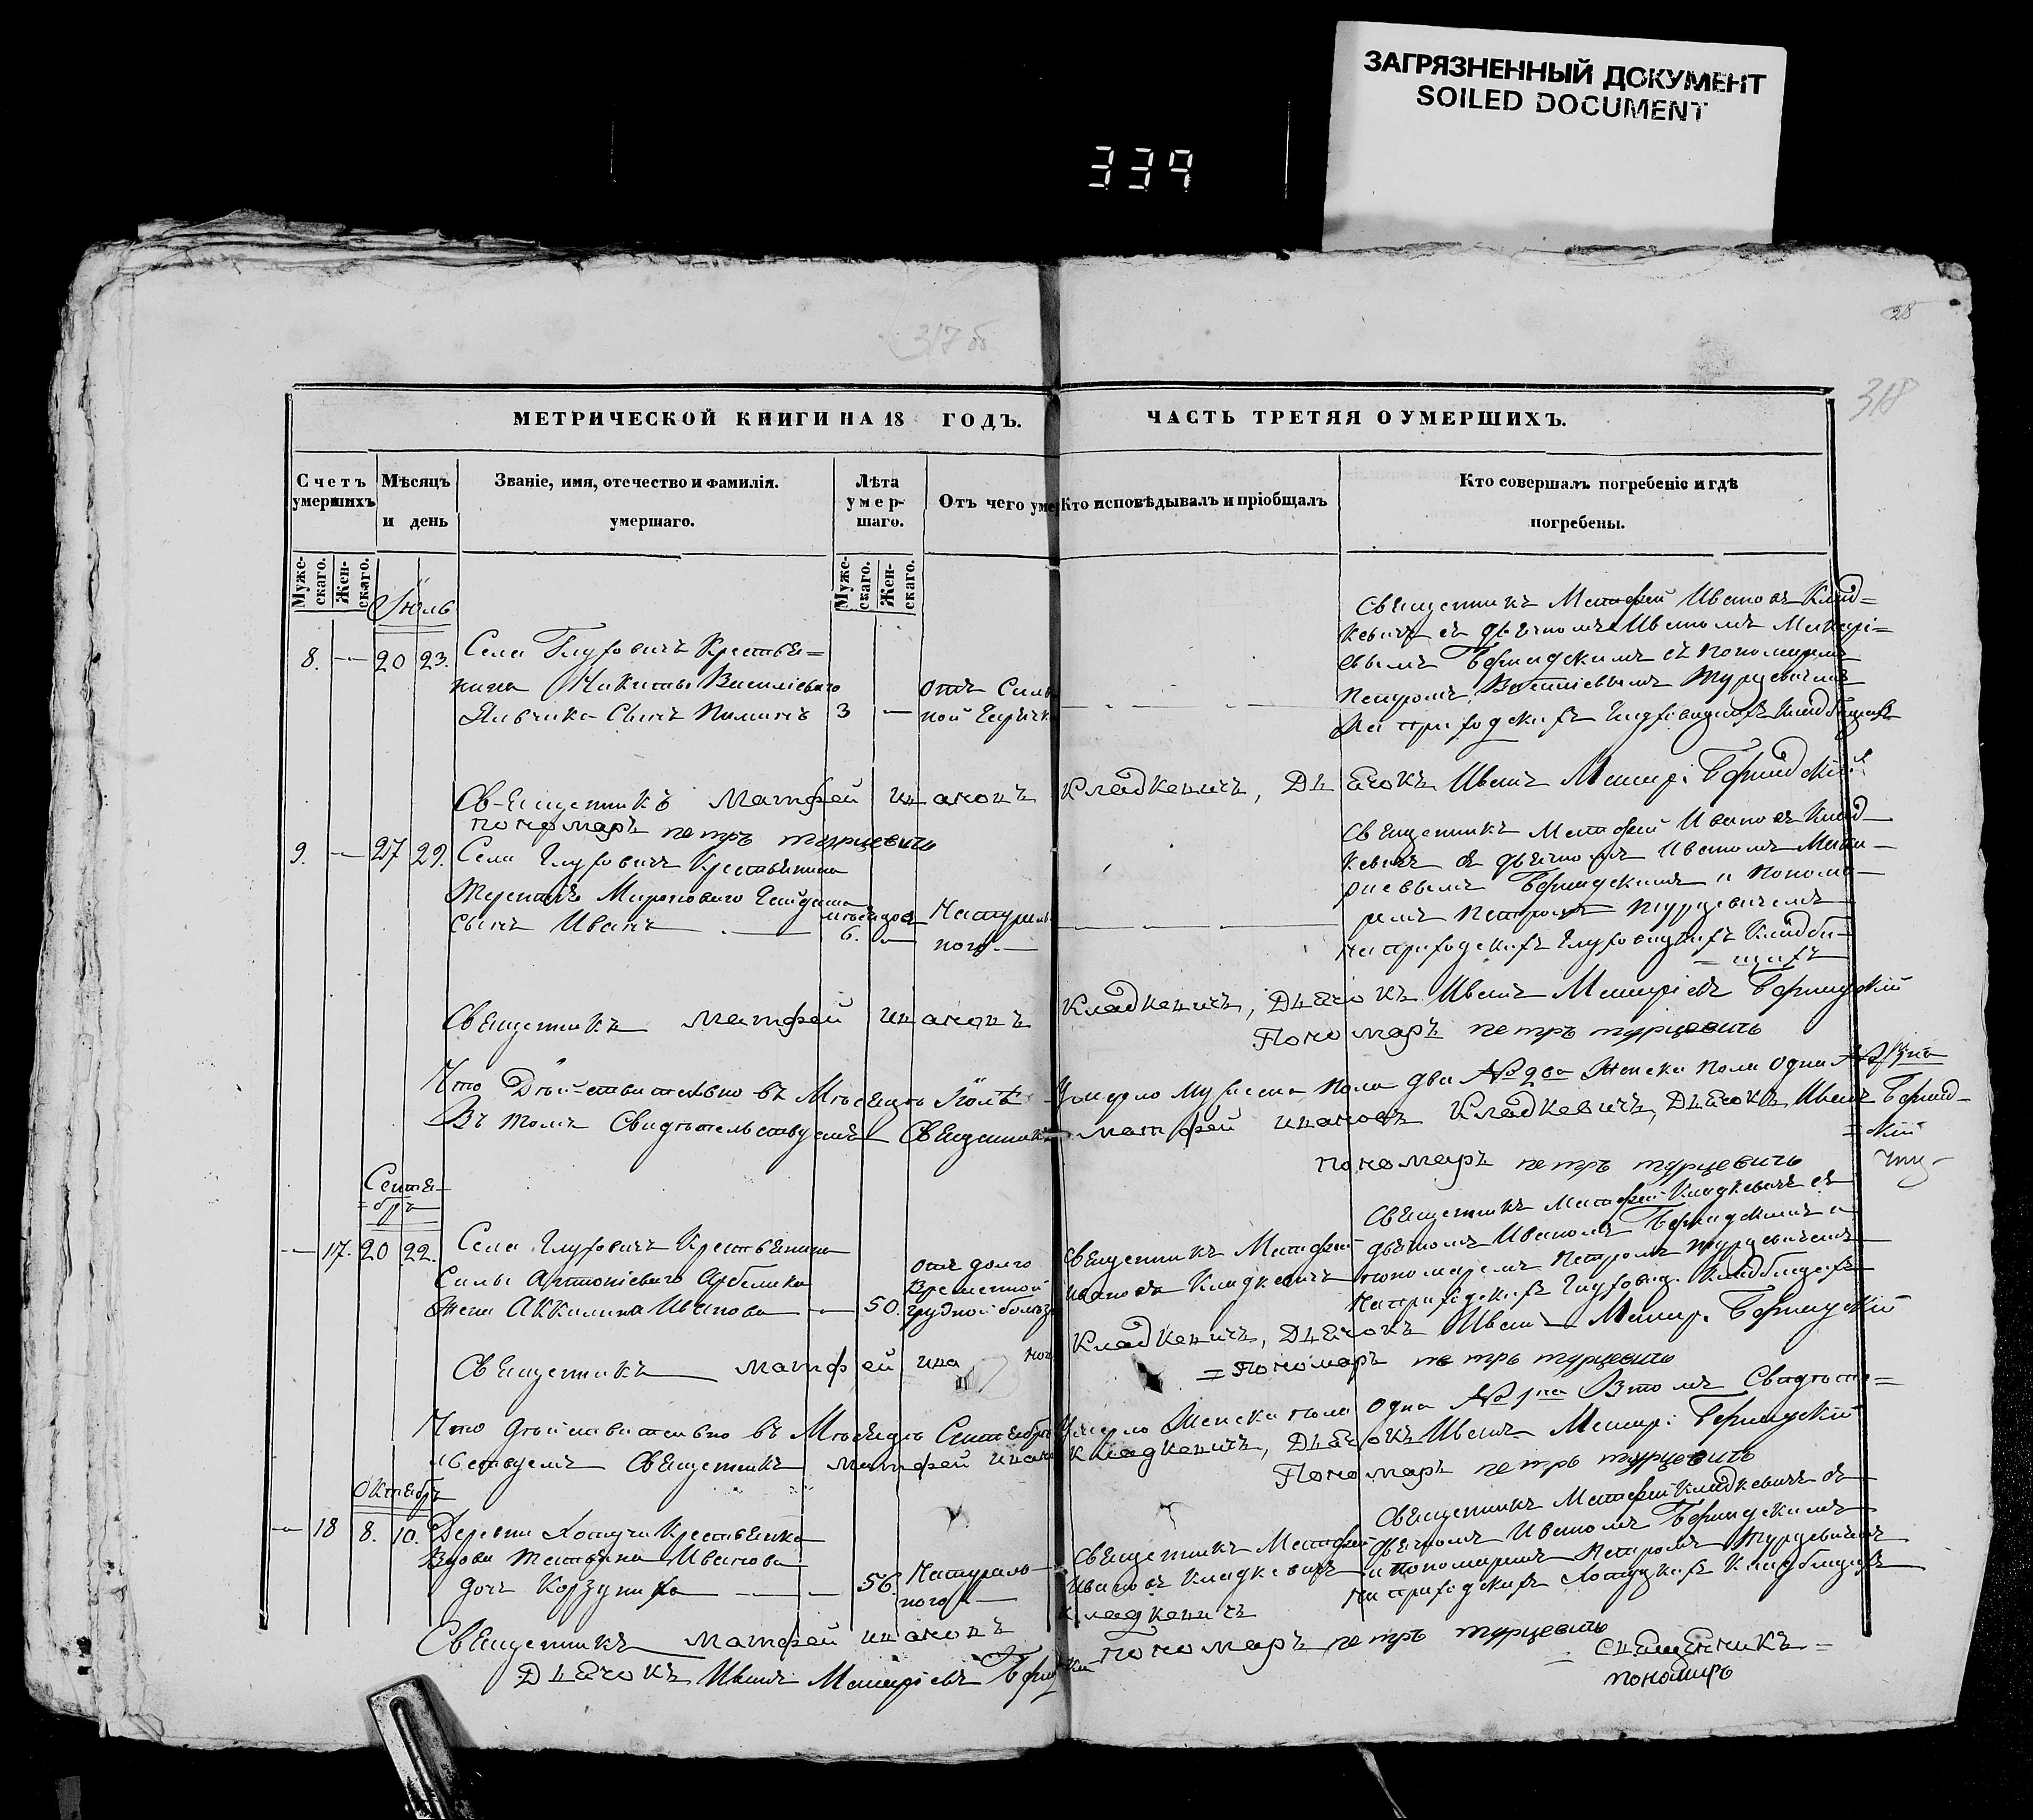 ЗАГРЯЗНЕННЫЙ ДОКУМЕНТ
SOILED DOCUMENT
339
317 об
28
318
МЕТРИЧЕСКОЙ КНИГИ НА 18 ГОДЪ.
ЧАСТЬ ТРЕТЯЯ О УМЕРШИХЪ.
Счетъ умершихъ
Мѣсяцъ и день
Званіе, имя, отечество и фамилія.
умершаго.
Лѣта умер-
шаго.
Отъ чего уме
Кто исповѣдывалъ и пріобщалъ
Кто совершалъ погребеніе и гдѣ
погребены.
Муже-
скаго.
Жен-
скаго.
Муже-
скаго.
Жен-
скаго.
Іюль
8. — 20 23.
Села Глуховичъ Крестья=
нина Никиты Василіеваго
сынъ 3 —
отъ Силь
ной
Священникъ Матфей Ивановъ Клад=
кевичъ съ дьячкомъ Иваномъ Макарі=
евымъ съ пономаремъ
Петромъ Василіевымъ Турцевичемъ
На приходскихъ Глуховицкихъ Кладбищахъ
Священникъ Матфей Ивановъ Кладкевичъ, Дьячокъ Иванъ
пономаръ петръ турцевичъ
9. — 27 29.
Села Глуховичъ Крестьянина
Мироноваго
сынъ Иванъ 6. —
Натураль
наго —
Священникъ Матфей Ивановъ Клад-
кевичъ съ дьячкомъ Иваномъ Мака-
ріевымъ и понома-
ремъ Петромъ Турцевичемъ
на приходскихъ Глуховицкихъ Кладби-
= щахъ
Священникъ Матфей Ивановъ Кладкевичъ, Дьячокъ Иванъ Макаріевъ
Пономаръ петръ турцевичъ
Что Дѣйствительно въ Мѣсяцѣ Іюлѣ Умерло мужеска пола два № 2ва Женска пола одна
Въ томъ Свидѣтельствуемъ Священникъ матфей ивановъ Кладкевичъ, Дьячокъ Иванъ
пономаръ петръ турцевичъ
Сентя-
=бръ
— 17. 20 22.
Села Глуховичъ Крестьянина
Силы Антоніеваго
жена Аккилина Иванова — 50.
отъ долго
Временной
грудной болѣз
Священникъ Матфей
Ивановъ Кладкевичъ
Священникъ Матфей Кладкевичъ съ
дьячкомъ Иваномъ и
пономаремъ Петромъ Турцевичемъ
На приходскихъ Глуховиц. Кладбищахъ
Священникъ матфей Кладкевичъ, Дьячокъ Иванъ
= Пономаръ петръ турцевичъ
Что дѣйствительно въ Мѣсяцѣ Сентябрѣ Умерло Женска пола одна № 1на В томъ Свидѣте=
льствуемъ Священникъ матфей Кладкевичъ, Дьячокъ Иванъ
Пономаръ петръ турцевичъ
Октябръ
— 18 8. 10.
Деревни Крестьянка
Вдова Татьяна Иванова
дочь — 56.
Натураль-
ного —
Священникъ Матфей
Ивановъ Кладкевичъ
Священникъ Матфей Кладкевичъ съ
дьячкомъ Иваномъ
и пономаремъ Петромъ Турцевичемъ
на приходскихъ Кладбищахъ
Священникъ матфей ивановъ Кладкевичъ
Дьячокъ Иванъ Макаріевъ
пономаръ петръ турцевичъ
Священникъ =
пономаръ